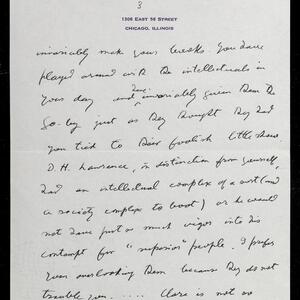 3
1306 EAST 56 STREET
CHICAGO, ILLINOIS
invariably make your breaks. You have
played around with the intellectuals in
your day and have invariably given them the
Go-by just as they thought they had
you tied to their foolish little show.
D. H. Lawrence, in distinction from yourself,
had an intellectual complex of a sort (and
a society complex to boot) or he would
not have put so much vigor into his
contempt for "superior" people. I prefer
your overlooking them because they do not
trouble you. . . . . Clare is not so